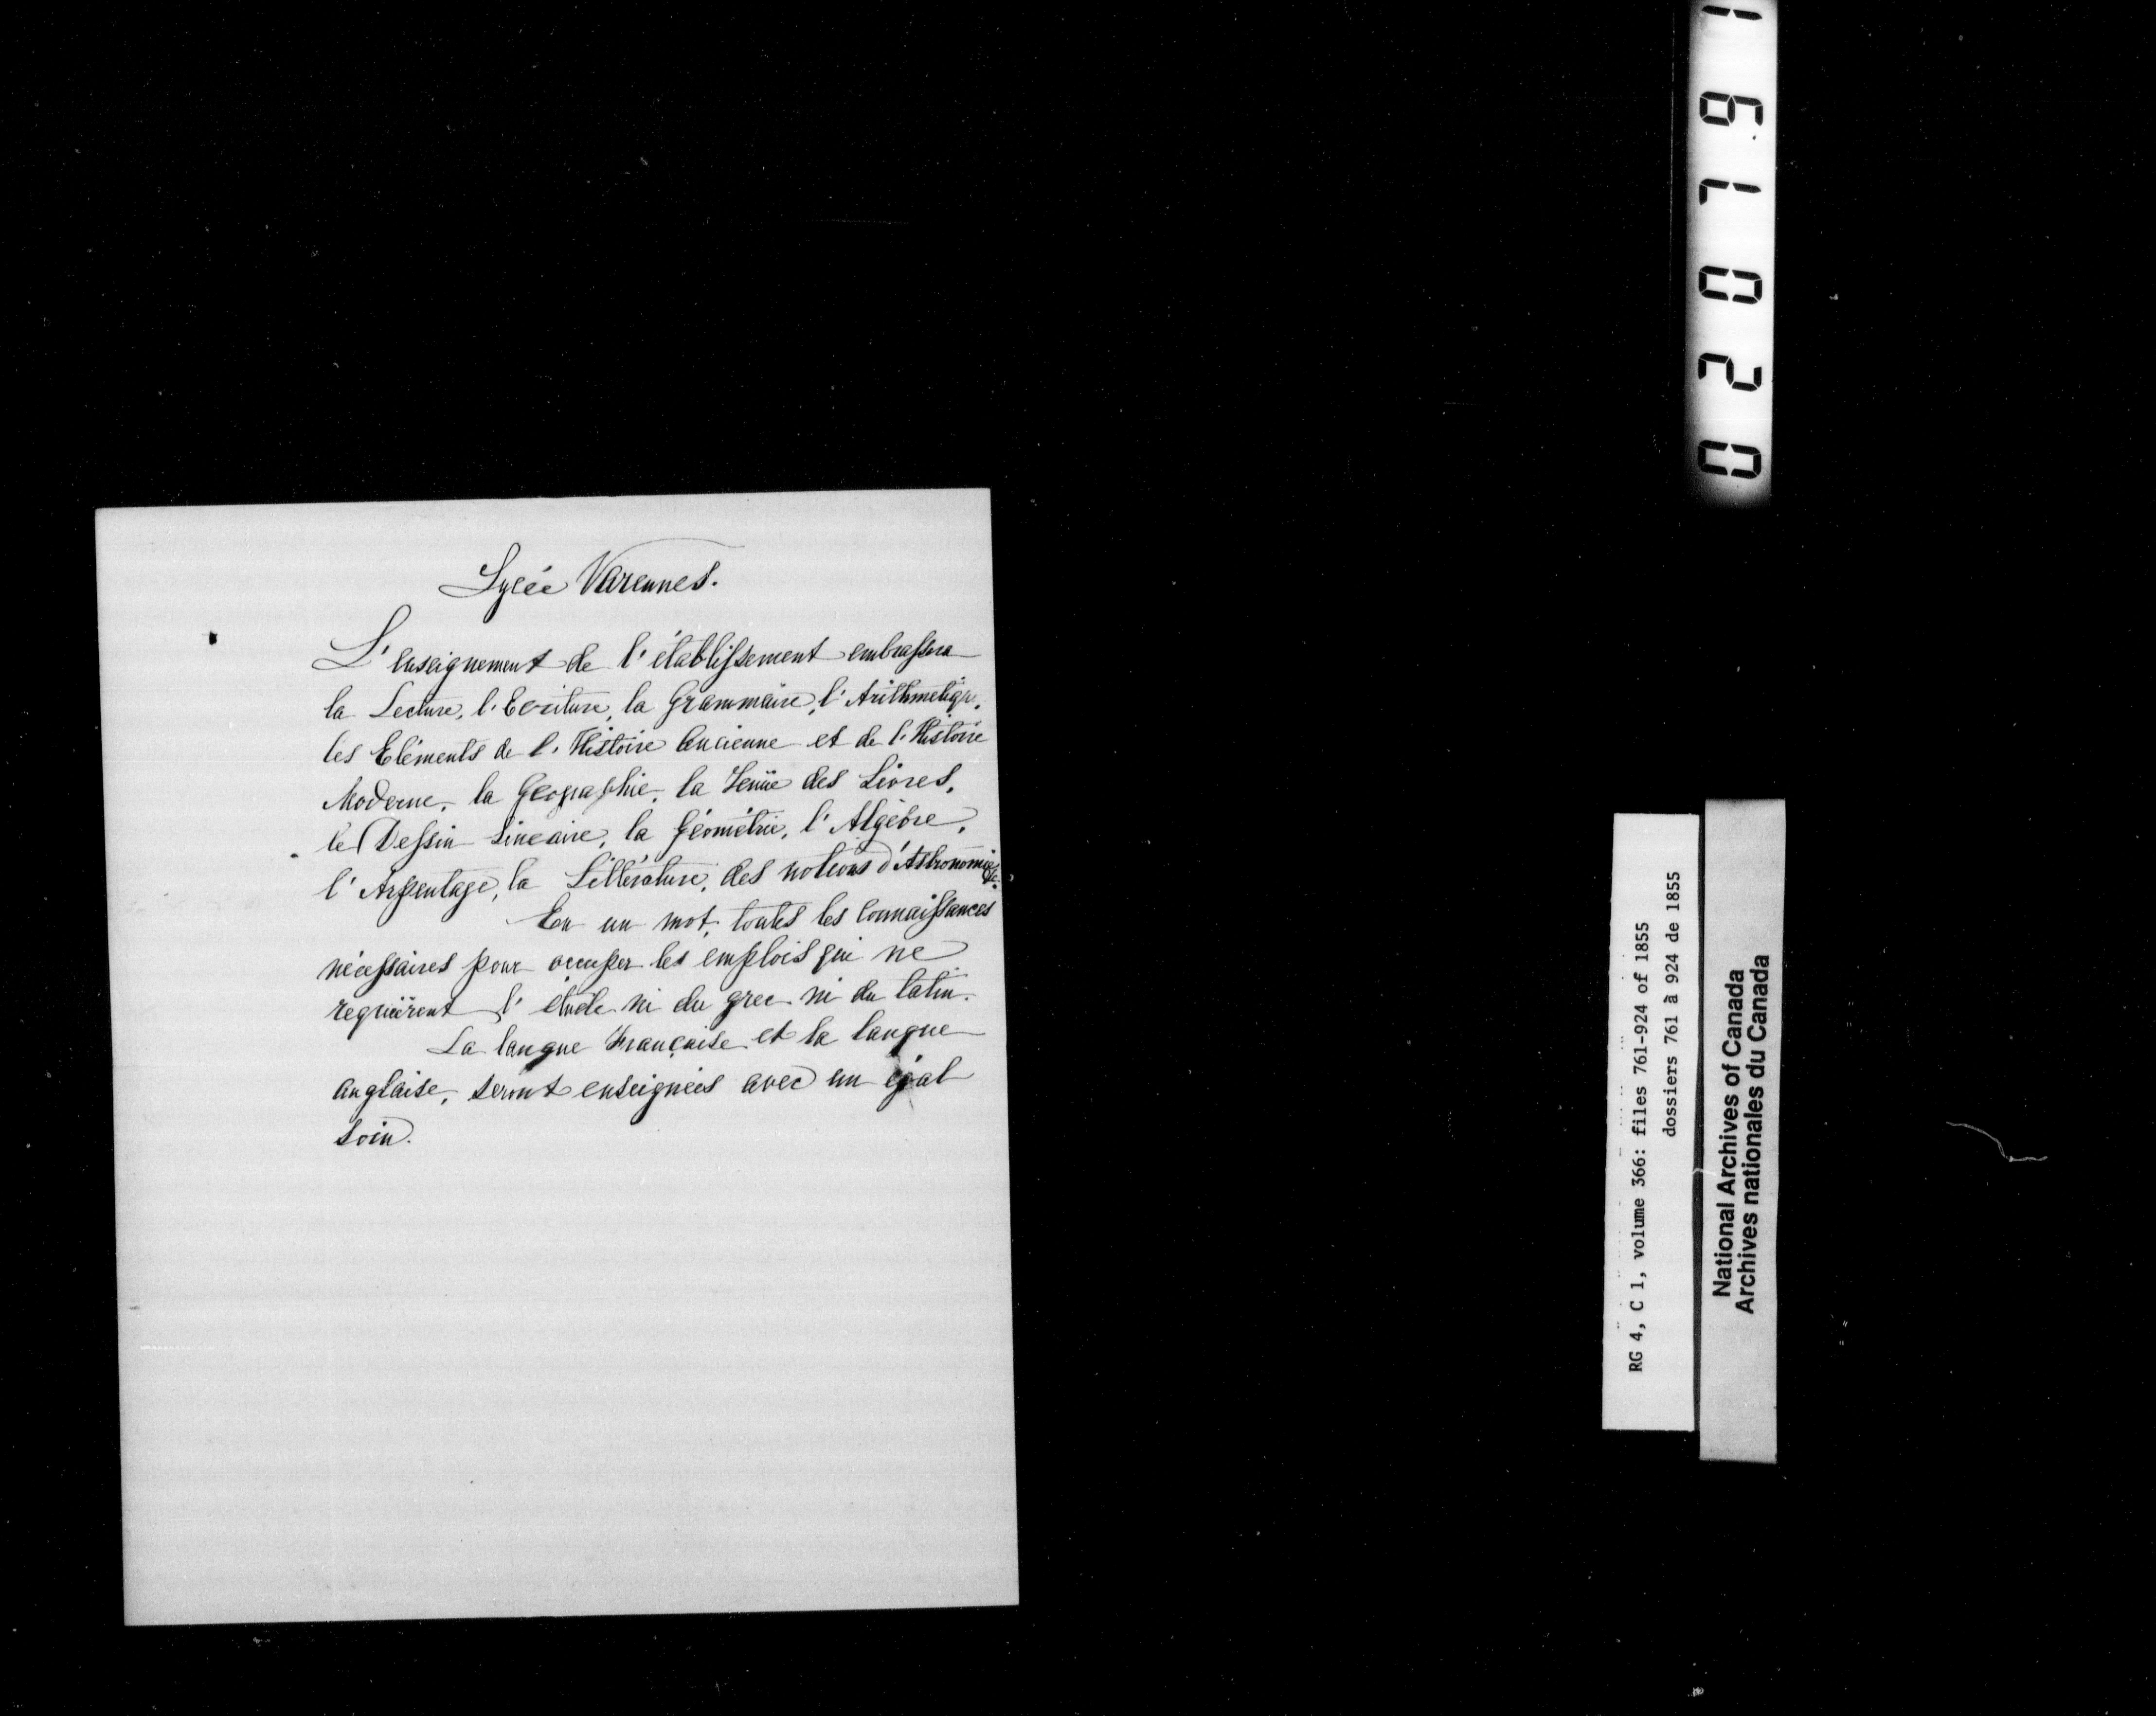 Lycée Varennes.
L'enseignement de l'établissement embrassera
la Lecture, l'Ecriture, la Grammaire, l'Arithmétiqu,
les Eléments de l'Histoire Ancienne et de l'Histoire
Moderne, la Geographie, la Tenüe des Livres,
le Dessin Lineaire, la Géométrie, l'Algèbre,
l'Arpentage, la Littérature, des notions d'Astronomie &c.
En un mot, toutes les connaissances
nécessaires pour occuper les emplois qui ne
requièrent l'étude ni du grec ni du latin.
La langue Française et la langue
anglaise, seront enseignées avec un égal
soin.
RG 4, C 1, volume 366: files 761-924 of 1855
dossiers 761 à 924 de 1855
National Archives of Canada
Archives nationales du Canada